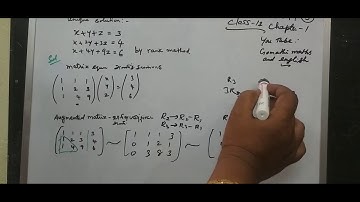 unique solution:-
x+y+z = 3
Sol x+2y+3z = 4
x+4y+9z = 6 by rank method
matrix equn
( 1 1 1
1 2 3
1 4 9 ) ( x
y
z ) = ( 3
4
6 )
Augmented matrix - R2→R2-R1
R3→R3-R1
[ 1 1 1 3
1 2 3 4
1 4 9 6 ] ~ ( 1 1 1 3
0 1 2 1
0 3 8 3 ) ~
Class-12 Chapter-1
You Tube:
Gomathi maths
and english
R3
3R2